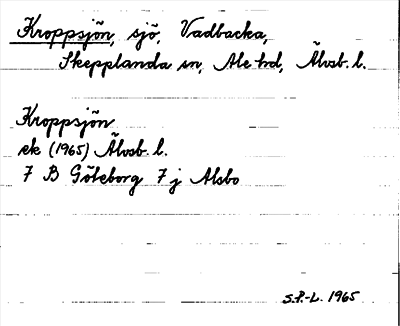 Kroppsjön, sjö, Vadbacka,
Skepplanda sn, Ale hd, Älvsb. l.
Kroppsjön
ek (1965) Älvsb. l.
7 B Göteborg 7 j Alsbo
S.P.-L. 1965